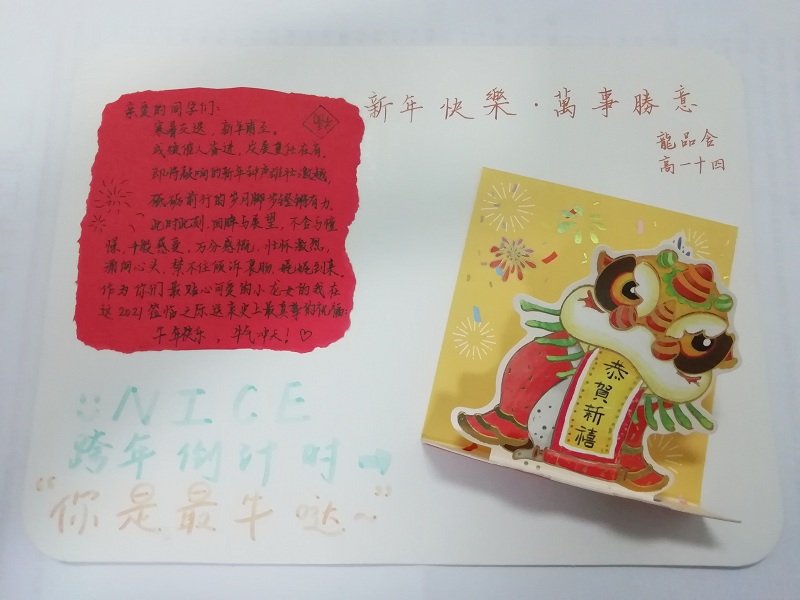 新年快樂·萬事勝意
龍品含
高一十四
亲爱的同学们：
寒暑交迭，新年肖立。
成绩催人奋进，发展重任在肩。
即将敲响的新年钟声雄壮激越，
砥砺前行的岁月脚步铿锵有力。
此时此刻，回眸与展望，不舍与憧
憬，千般感受，万分感慨，壮怀激烈，
涌向心头，禁不住倾诉衷肠，娓娓到来。
作为你们最贴心可爱的小龙女的我在
这2021莅临之际送来史上最真挚的祝福：
牛年快乐，牛气冲天！♡
恭賀新禧
NICE
跨年倒计时
“你是最牛哒~”